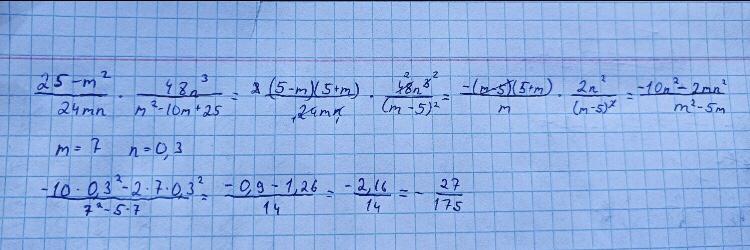 (25-m²)/(24mn) · (48n³)/(m²-10m+25) = ((5-m)(5+m))/(24mn) · (48n³)/((m-5)²) = (-(m-5)(5+m))/m · (2n²)/((m-5)²) = (-10n²-2mn²)/(m²-5m)
m=7 n=0,3
(-10·0,3²-2·7·0,3²)/(7²-5·7) = (-0,9-1,26)/14 = (-2,16)/14 = -27/175